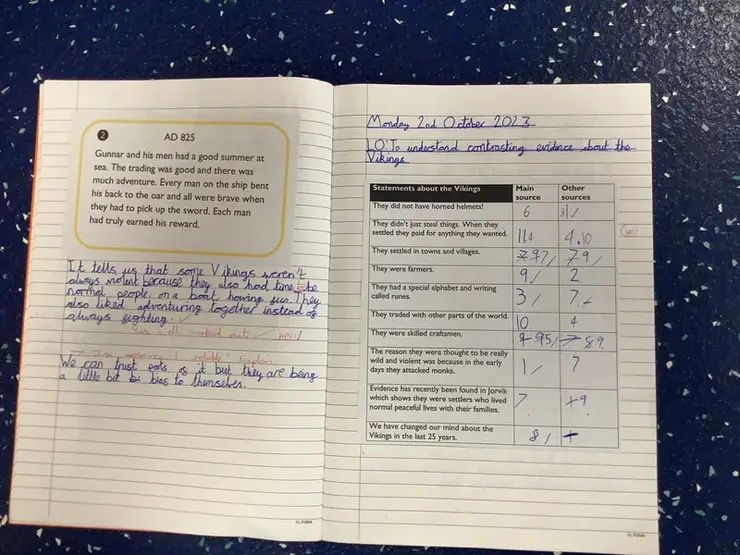 2
AD 825
Gunnar and his men had a good summer at
sea. The trading was good and there was
much adventure. Every man on the ship bent
his back to the oar and all were brave when
they had to pick up the sword. Each man
had truly earned his reward.
It tells us that some Vikings weren't
always violent because they also had time to be
normal people on a boat having fun. They
also liked adventuring together instead of
always fighting.
well worked out
reliable? Explain
We can trust parts of it but they are being
a little bit bias to themselves.
T.L.P3804
Monday 2nd October 2023
LO: To understand contrasting evidence about the
Vikings
Statements about the Vikings Main source Other sources
They did not have horned helmets! 6
They didn't just steal things. When they
settled they paid for anything they wanted. 4.10
They settled in towns and villages.
They were farmers. 9 2
They had a special alphabet and writing
called runes. 3 7
They traded with other parts of the world. 10 4
They were skilled craftsmen. 89
The reason they were thought to be really
wild and violent was because in the early
days they attacked monks. 1 7
Evidence has recently been found in Jorvik
which shows they were settlers who lived
normal peaceful lives with their families. 7 9
We have changed our mind about the
Vikings in the last 25 years. 8